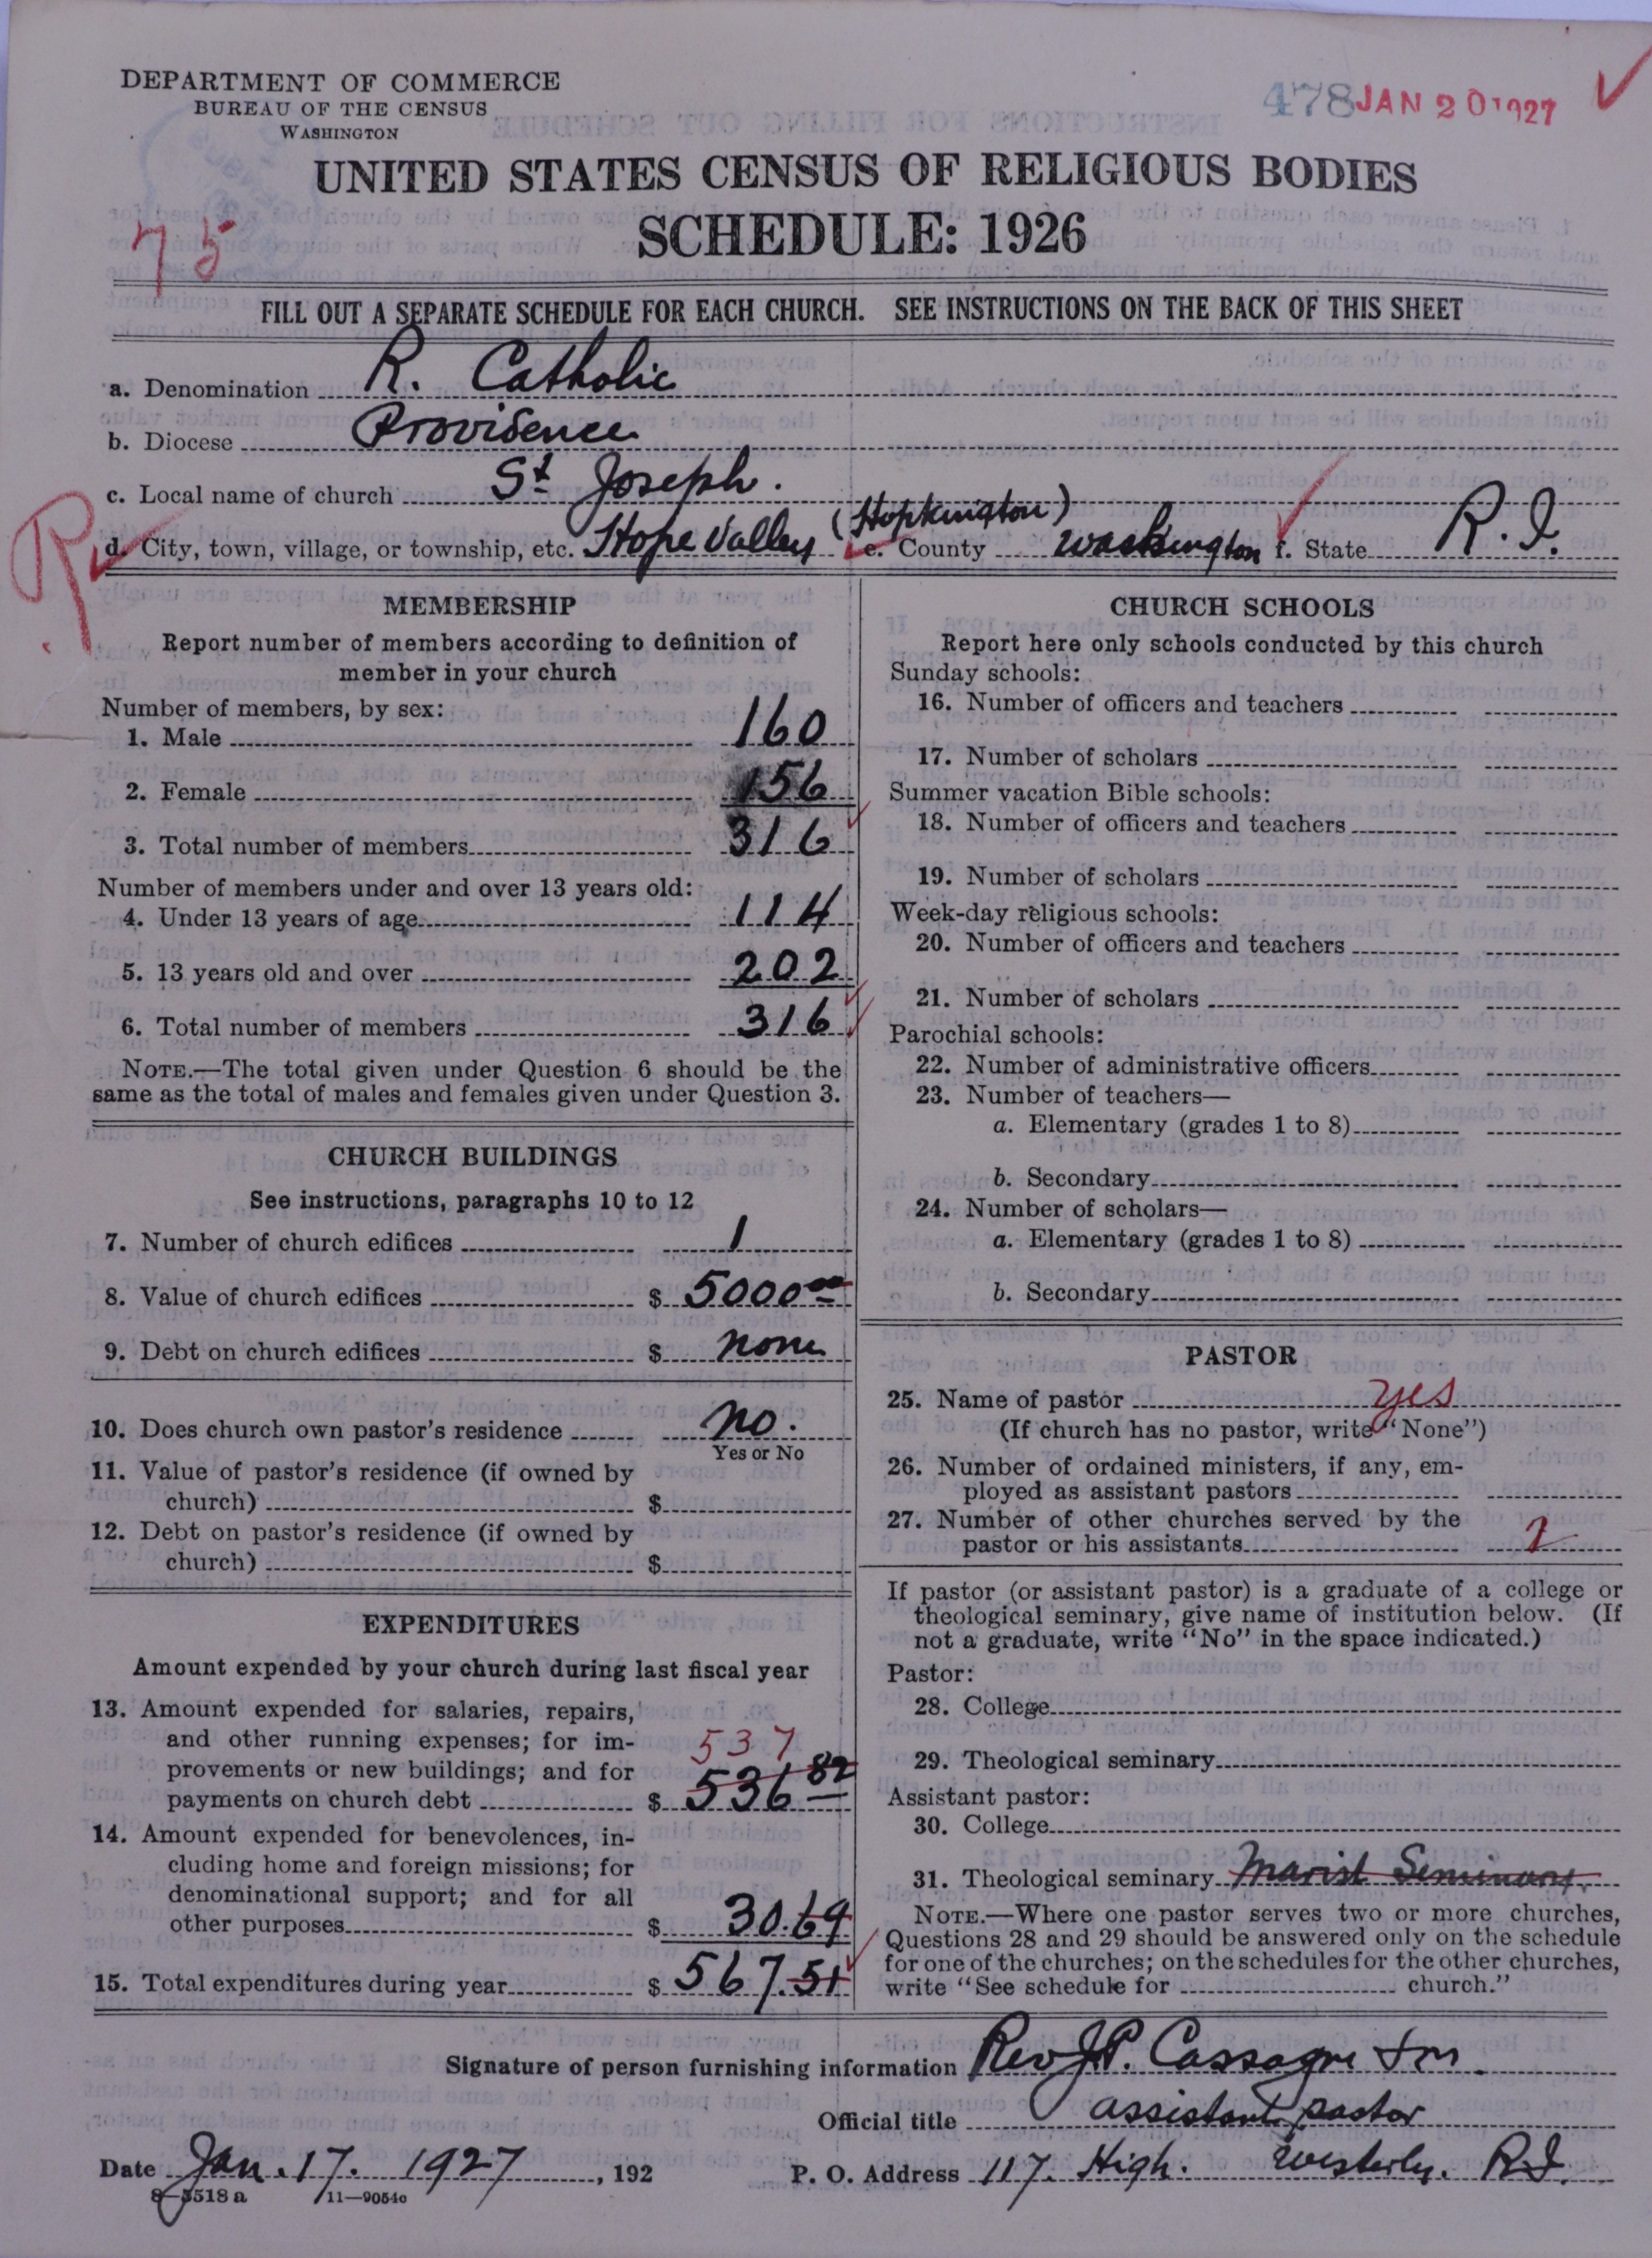 DEPARTMENT OF COMMERCE
BUREAU OF THE CENSUS
WASHINGTON
478 JAN 20 1927
UNITED STATES CENSUS OF RELIGIOUS BODIES
SCHEDULE: 1926
75
FILL OUT A SEPARATE SCHEDULE FOR EACH CHURCH. SEE INSTRUCTIONS ON THE BACK OF THIS SHEET
a. Denomination R. Catholic
b. Diocese Providence
c. Local name of church St Joseph.
d. City, town, village, or township, etc. Hope Valley (Hopkington) e. County Washington f. State R.I.
R
MEMBERSHIP
Report number of members according to definition of
member in your church
Number of members, by sex:
1. Male 160
2. Female 156
3. Total number of members 316
Number of members under and over 13 years old:
4. Under 13 years of age 114
5. 13 years old and over 202
6. Total number of members 316
NOTE.—The total given under Question 6 should be the
same as the total of males and females given under Question 3.
CHURCH BUILDINGS
See instructions, paragraphs 10 to 12
7. Number of church edifices 1
8. Value of church edifices $ 5000 00
9. Debt on church edifices $ none
10. Does church own pastor's residence no.
Yes or No
11. Value of pastor's residence (if owned by
church) $
12. Debt on pastor's residence (if owned by
church) $
EXPENDITURES
Amount expended by your church during last fiscal year
13. Amount expended for salaries, repairs,
and other running expenses; for im-
537
provements or new buildings; and for
payments on church debt $ 536 82
14. Amount expended for benevolences, in-
cluding home and foreign missions; for
denominational support; and for all
other purposes $ 30.69
15. Total expenditures during year $ 567.51
CHURCH SCHOOLS
Report here only schools conducted by this church
Sunday schools:
16. Number of officers and teachers
17. Number of scholars
Summer vacation Bible schools:
18. Number of officers and teachers
19. Number of scholars
Week-day religious schools:
20. Number of officers and teachers
21. Number of scholars
Parochial schools:
22. Number of administrative officers
23. Number of teachers—
a. Elementary (grades 1 to 8)
b. Secondary
24. Number of scholars—
a. Elementary (grades 1 to 8)
b. Secondary
PASTOR
25. Name of pastor yes
(If church has no pastor, write "None")
26. Number of ordained ministers, if any, em-
ployed as assistant pastors
27. Number of other churches served by the
pastor or his assistants 2
If pastor (or assistant pastor) is a graduate of a college or
theological seminary, give name of institution below. (If
not a graduate, write "No" in the space indicated.)
Pastor:
28. College
29. Theological seminary
Assistant pastor:
30. College
31. Theological seminary Marist Seminary.
NOTE.—Where one pastor serves two or more churches,
Questions 28 and 29 should be answered only on the schedule
for one of the churches; on the schedules for the other churches,
write "See schedule for church."
Signature of person furnishing information Rev J.P. Cassagne
Official title assistant pastor
Date Jan. 17. 1927, 192 P. O. Address 117. High. Westerly. R.I.
8—5518 a 11—9054c